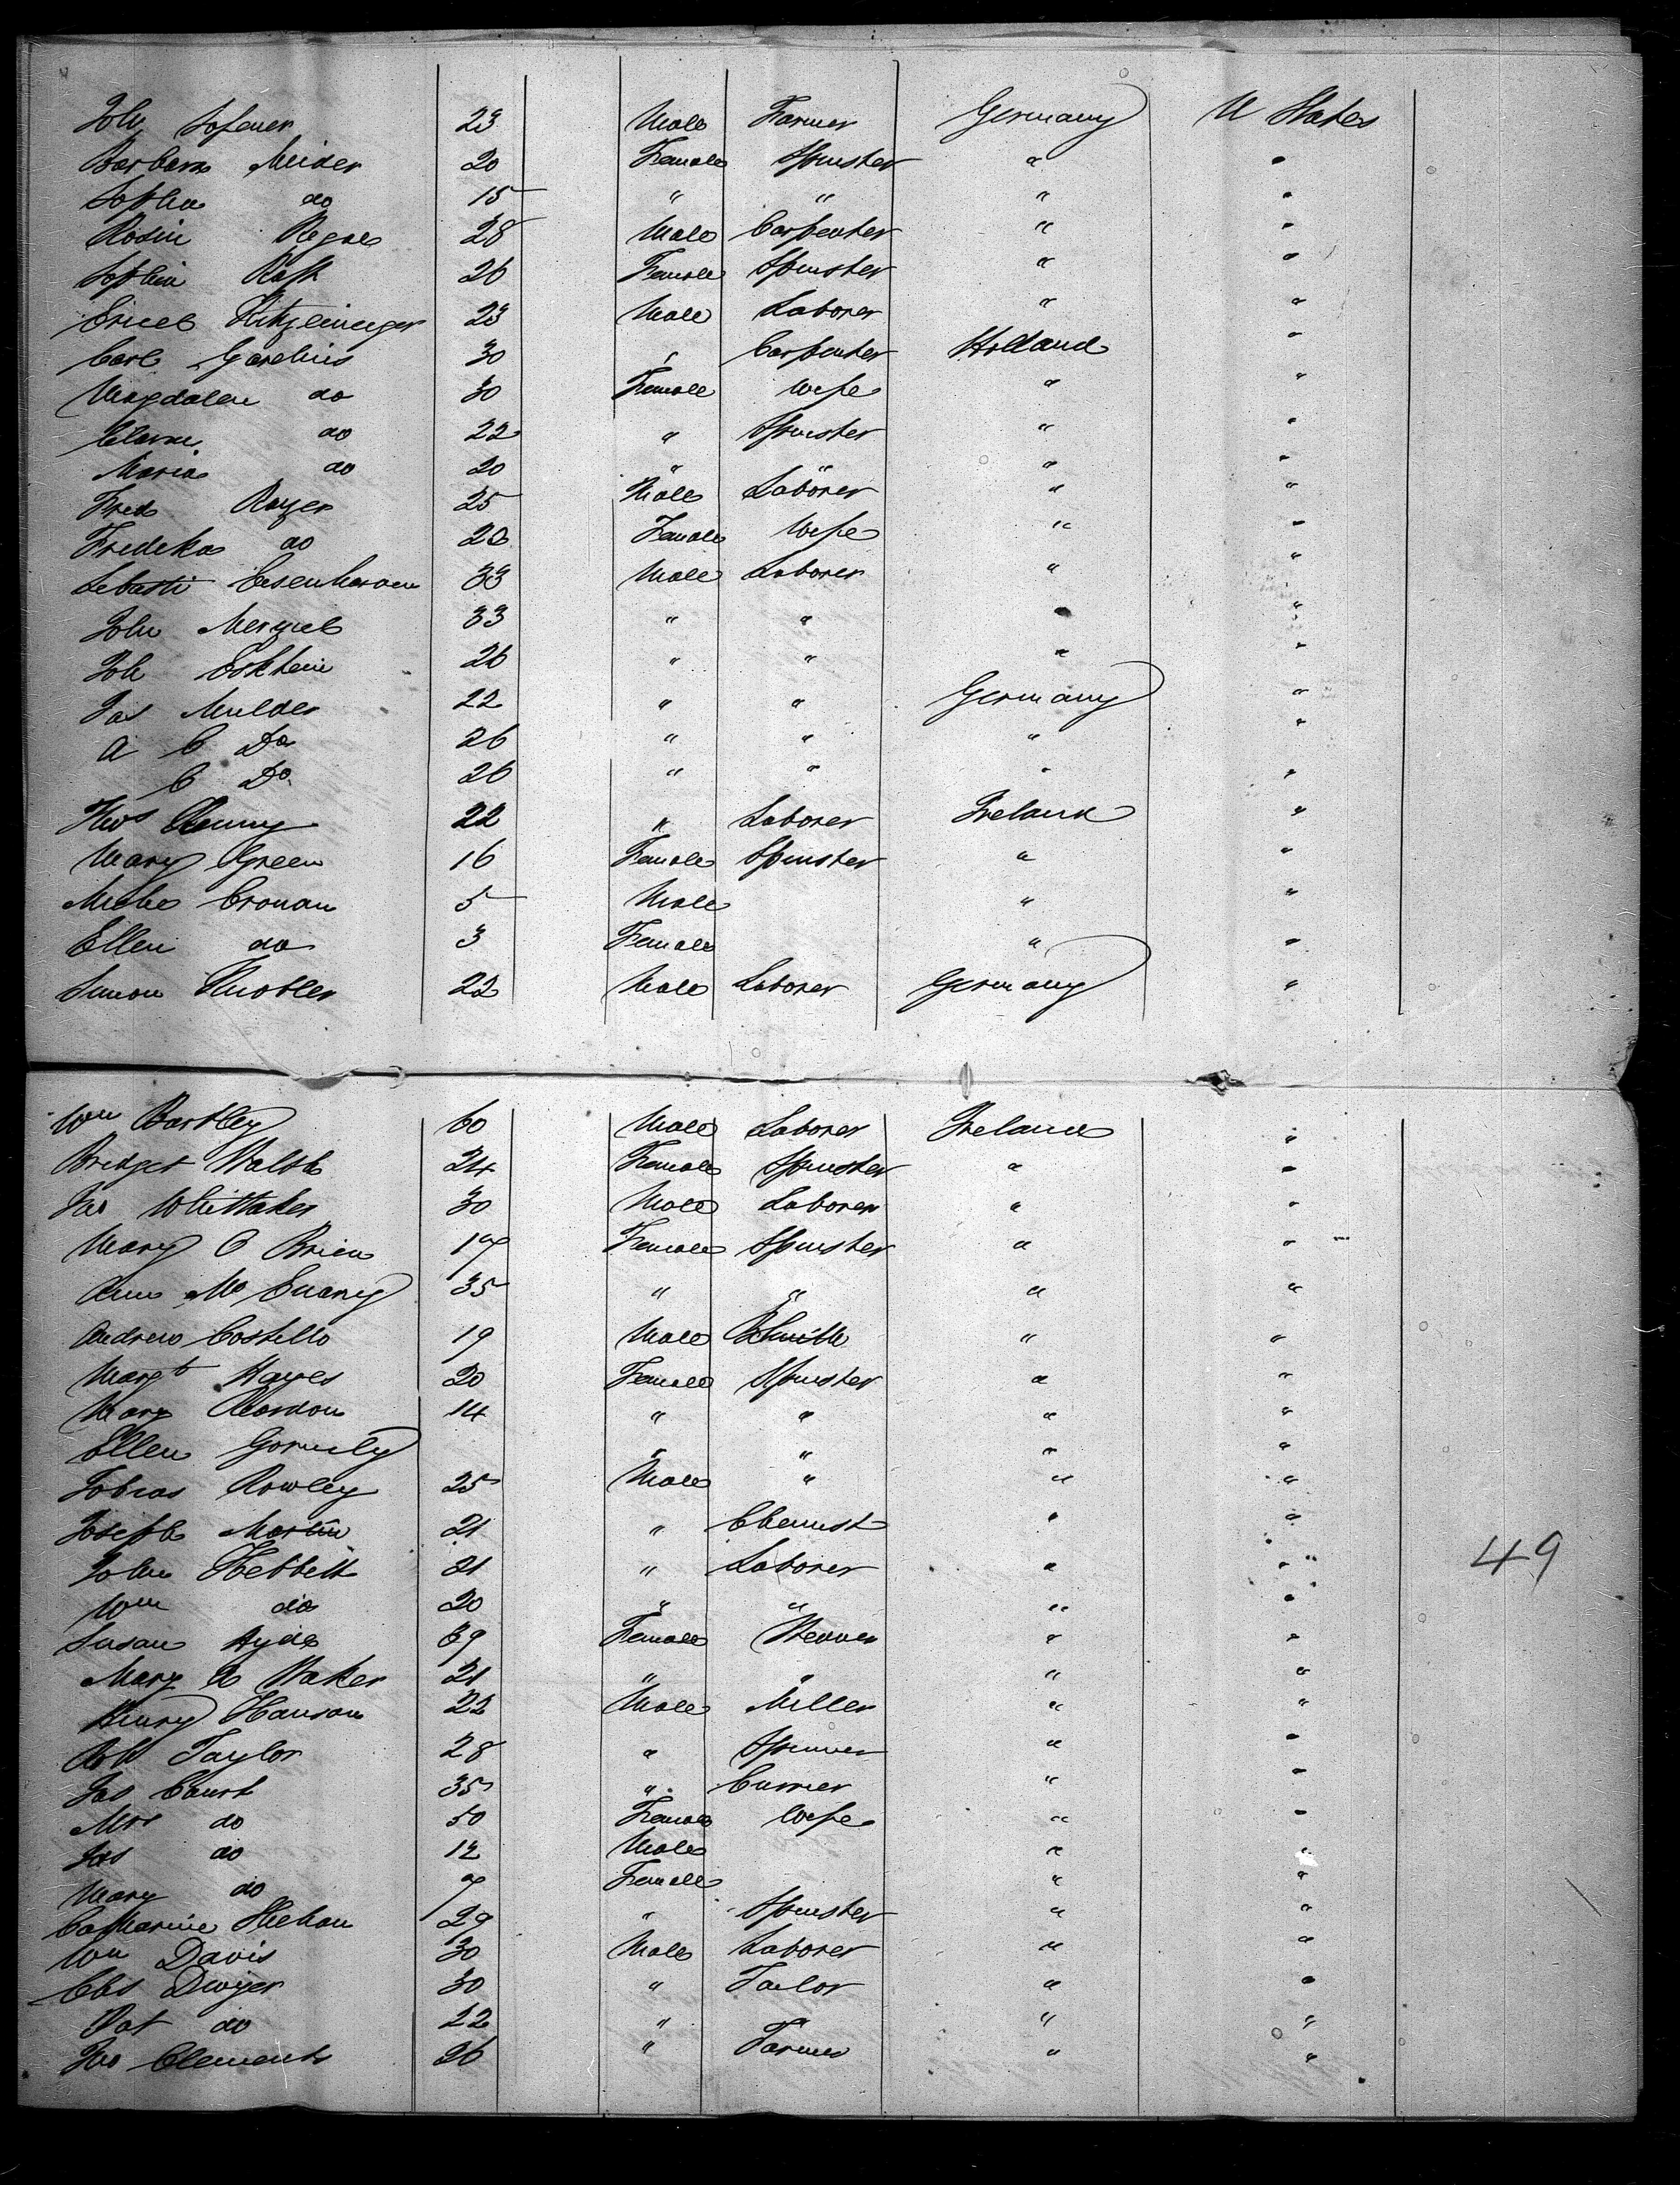 Joh Sofener 23 Male Farmer Germany U States
Barbara Meider 20 Female Spinster " "
Sophia do 15 " " " "
Rosin 28 Male Carpenter " "
Sophia Rath 26 Female Spinster " "
23 Male Laborer " "
Carl Garelius 30 " Carpenter Holland "
Magdalen do 30 Female Wife " "
Clara do 22 " Spinster " "
Maria do 20 " " " "
Fred Rayer 25 Male Laborer " "
Fredeka do 22 Female Wife " "
Sebasti 33 Male Laborer " "
John Mergueb 33 " " " "
Joh Eskhein 26 " " " "
Jas Mulder 22 " " Germany "
A C Do 26 " " " "
C Do 26 " " " "
Thos 22 " Laborer Ireland "
Mary Green 16 Female Spinster " "
Michl Cronan 5 Male " "
Ellen do 3 Female " "
Simon Knobler 22 Male Laborer Germany "
Wm Bartley 60 Male Laborer Ireland "
Bridget Walsh 24 Female Spinster " "
Jno Whittaker 30 Male Laborer " "
Mary O Brien 17 Female Spinster " "
Ann Mc Enany 35 " " " "
Andrew Costello 19 Male BSmith " "
Margt Hayes 20 Female Spinster " "
Mary Reardon 14 " " " "
Ellen Gormly " " " "
Tobias Rowley 25 Male " " "
Joseph Martin 21 " Chemist " "
John Hebbett 21 " Laborer " "
Wm do 20 " " " "
Susan Hyde 39 Female Weaver " "
Mary A Baker 21 " " " "
Henry Hanson 22 Male Miller " "
Robt Taylor 28 " Spinner " "
Jas Count 35 " Currier " "
Mrs do 50 Female Wife " "
Jas do 12 Male " "
Mary do 7 Female " "
Catharine Shehan 29 " Spinster " "
Wm Davis 30 Male Laborer " "
Chs Dwyer 30 " Tailor " "
Pat do 22 " " " "
Jno Clements 26 " Farmer " "
49